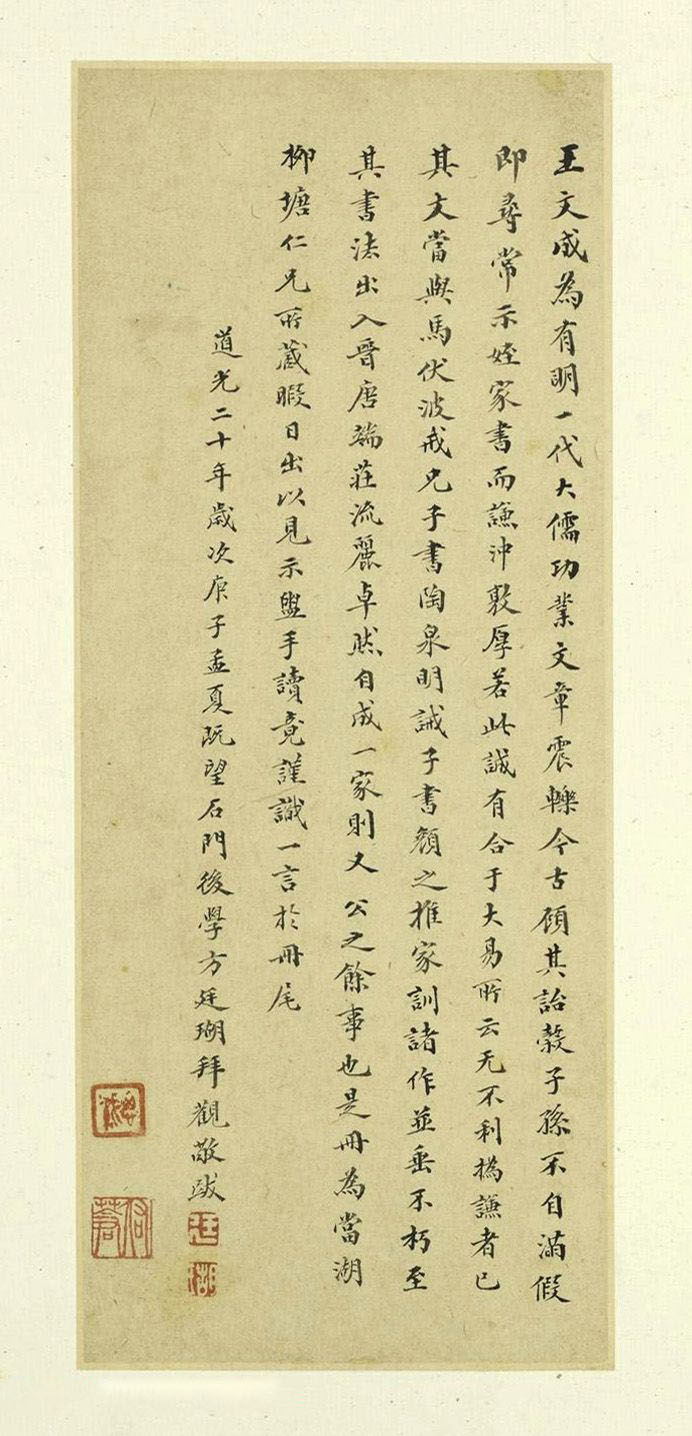 王文成為有明一代大儒功業文章震轢今古顧其詒穀子孫不自滿假
即尋常示姪家書而謙沖敦厚若此誠有合于大易所云无不利撝謙者已
其文當與馬伏波戒兄子書陶泉明誡子書顏之推家訓諸作並垂不朽至
其書法出入晉唐端莊流麗卓然自成一家則又 公之餘事也是冊為當湖
柳塘仁兄所藏暇日出以見示盥手讀竟謹識一言於冊尾
道光二十年歲次庚子孟夏既望石門後學方廷瑚拜觀敬跋
廷
瑚